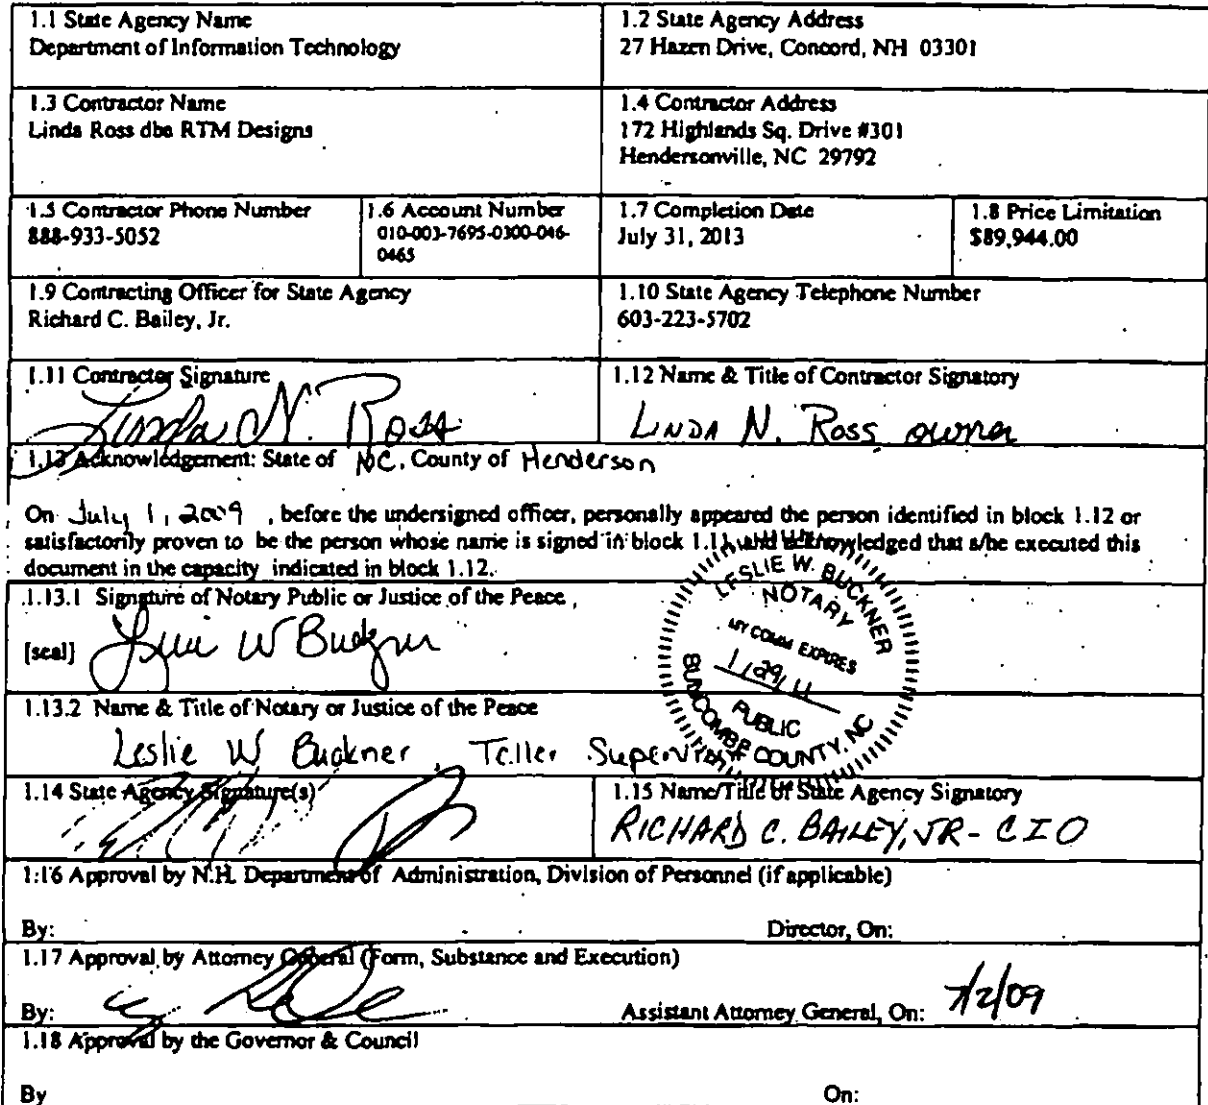 1.1 State Agency Name
Department of Information Technology
1.2 State Agency Address
27 Hazen Drive, Concord, NH 03301
1.3 Contractor Name
Linda Ross dba RTM Designs
1.4 Contractor Address
172 Highlands Sq. Drive #301
Hendersonville, NC 29792
1.5 Contractor Phone Number
888-933-5052
1.6 Account Number
010-003-7695-0300-046-
0465
1.7 Completion Date
July 31, 2013
1.8 Price Limitation
$89,944.00
1.9 Contracting Officer for State Agency
Richard C. Bailey, Jr.
1.10 State Agency Telephone Number
603-223-5702
1.11 Contractor Signature
Linda N. Ross
1.12 Name & Title of Contractor Signatory
LINDA N. Ross owner
1.13 Acknowledgement: State of NC, County of Henderson
On July 1, 2009, before the undersigned officer, personally appeared the person identified in block 1.12 or
satisfactorily proven to be the person whose name is signed in block 1.11, and acknowledged that s/he executed this
document in the capacity indicated in block 1.12.
1.13.1 Signature of Notary Public or Justice of the Peace
[seal] Leslie W Buckner
LESLIE W. BUCKNER
NOTARY
MY COMM EXPIRES
1/29/11
PUBLIC
BUNCOMBE COUNTY, NC
1.13.2 Name & Title of Notary or Justice of the Peace
Leslie W Buckner, Teller Supervisor
1.14 State Agency Signature(s)
1.15 Name/Title of State Agency Signatory
RICHARD C. BAILEY, JR - CIO
1.16 Approval by N.H. Department of Administration, Division of Personnel (if applicable)
By: Director, On:
1.17 Approval by Attorney General (Form, Substance and Execution)
By: Assistant Attorney General, On: 7/2/09
1.18 Approval by the Governor & Council
By On: